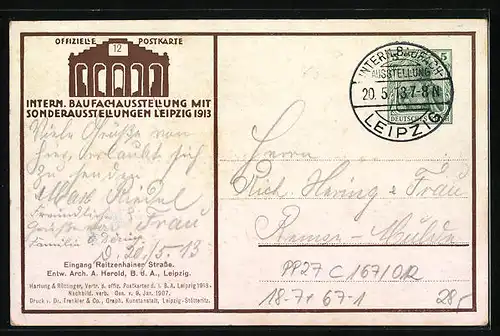 OFFIZIELLE POSTKARTE
12
INTERN. BAUFACHAUSSTELLUNG MIT
SONDERAUSSTELLUNGEN LEIPZIG 1913
Viele Grüsse von
hier erlaubt sich
zu senden
Max Riedel
Frau
Familie
D. 20/5.13
Eingang Reitzenhainer Straße.
Entw. Arch. A. Herold, B. d. A., Leipzig.
Hartung & Röttinger, Vertr. d. offiz. Postkarten d. I. B. A. Leipzig 1913.
Nachbild. verb. Ges. v. 9. Jan. 1907.
Druck v. Dr. Trenkler & Co., Graph. Kunstanstalt, Leipzig-Stötteritz.
INTERN. BAUFACH-
AUSSTELLUNG
20.5.13.7-8N
LEIPZIG
5
DEUTSCHES
Herrn
Rich. Hering & Frau
PP27 C 167/02
18-7+67-1
28,-